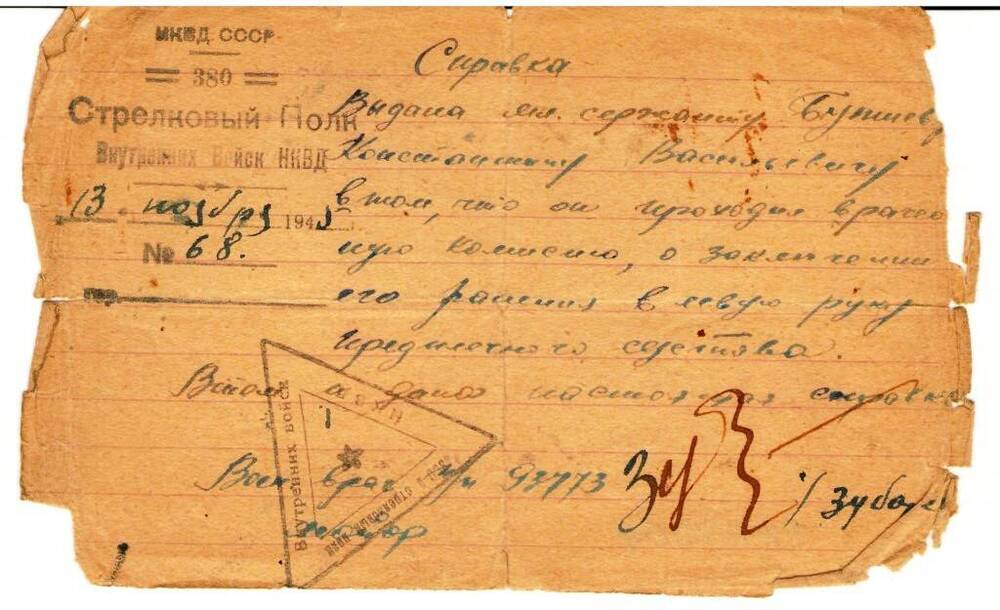 МКВД СССР
380
Стрелковый Полк
Внутренних Войск НКВД
13 ноября 1945
№ 68.
Справка
Выдана мл. сержанту
Константину Васильевичу
в том, что он проходил врачеб
ную комиссию, о заключении
его ранения в левую руку
предплечного
В том и дана настоящая справка
Воен врач п/п 93773
майор
Внутренних войск
НКВД